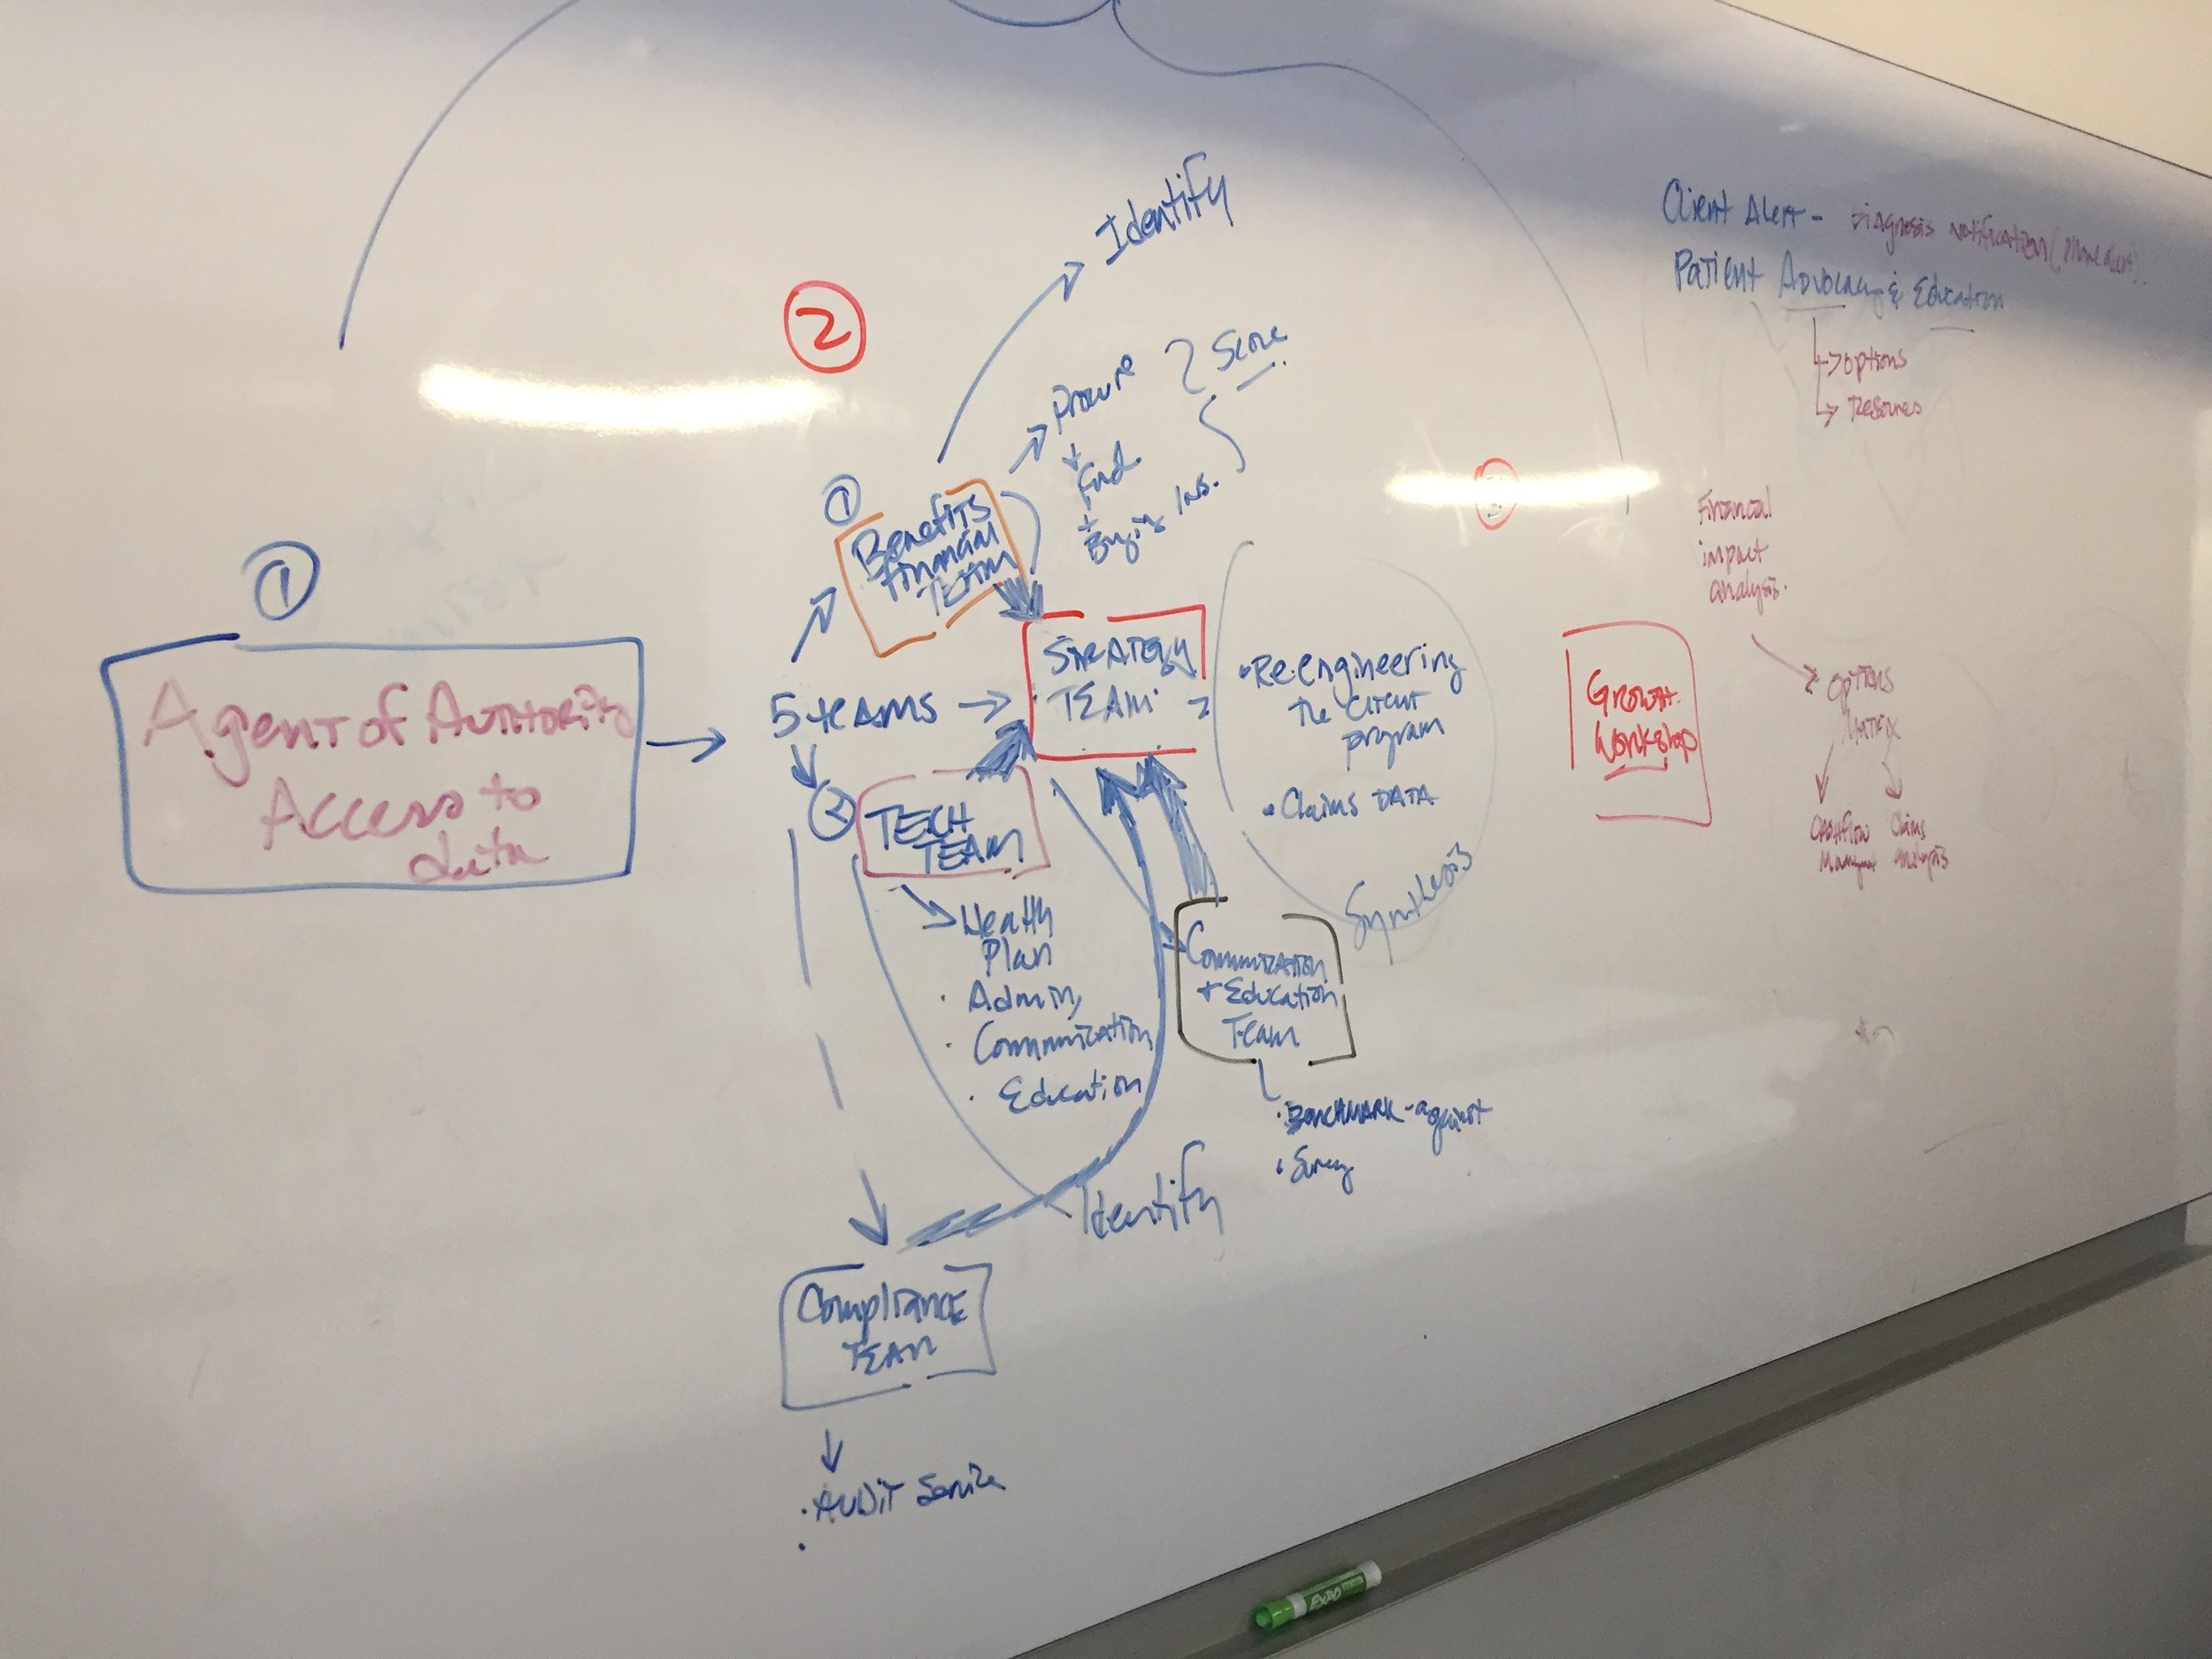 ①
Agent of Authority
Access to
data
②
5 teams
①
Benefits
Financial
TEAM
Identify
Procure
+
Fund
+
Buying Ins.
Score
STRATEGY
TEAM
②
TECH
TEAM
Health
Plan
· Admin,
· Communication
· Education
Identify
Compliance
TEAM
· AUDIT Service
·
Communication
+ Education
Team
· BENCHMARK - against
· Survey
• Re-engineering
the client
program
• Claims DATA
Synthesis
Growth
Workshop
Client Alert - Diagnosis Notification
Patient Advocacy & Education
options
Resources
Financial
impact
analysis.
options
Matrix
Cashflow
Claims
analysis
EXPO